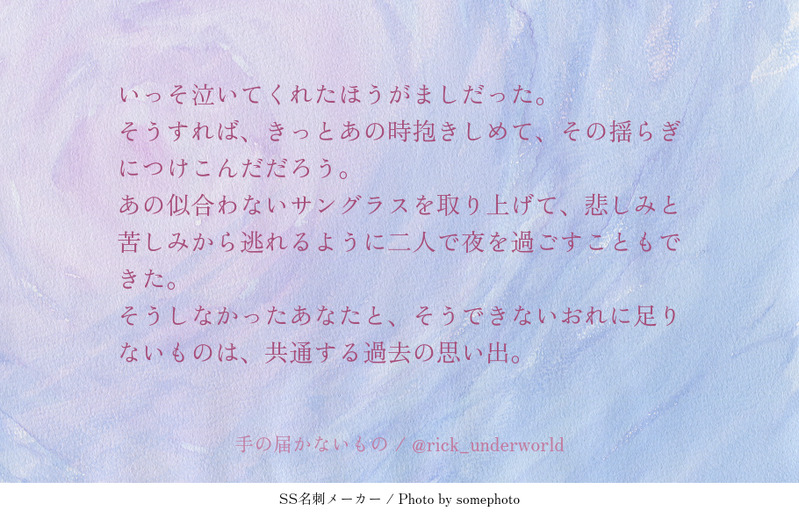 いっそ泣いてくれたほうがましだった。
そうすれば、きっとあの時抱きしめて、その揺らぎ
につけこんだだろう。
あの似合わないサングラスを取り上げて、悲しみと
苦しみから逃れるように二人で夜を過ごすこともで
きた。
そうしなかったあなたと、そうできないおれに足り
ないものは、共通する過去の思い出。
手の届かないもの / @rick_underworld
SS名刺メーカー / Photo by somephoto